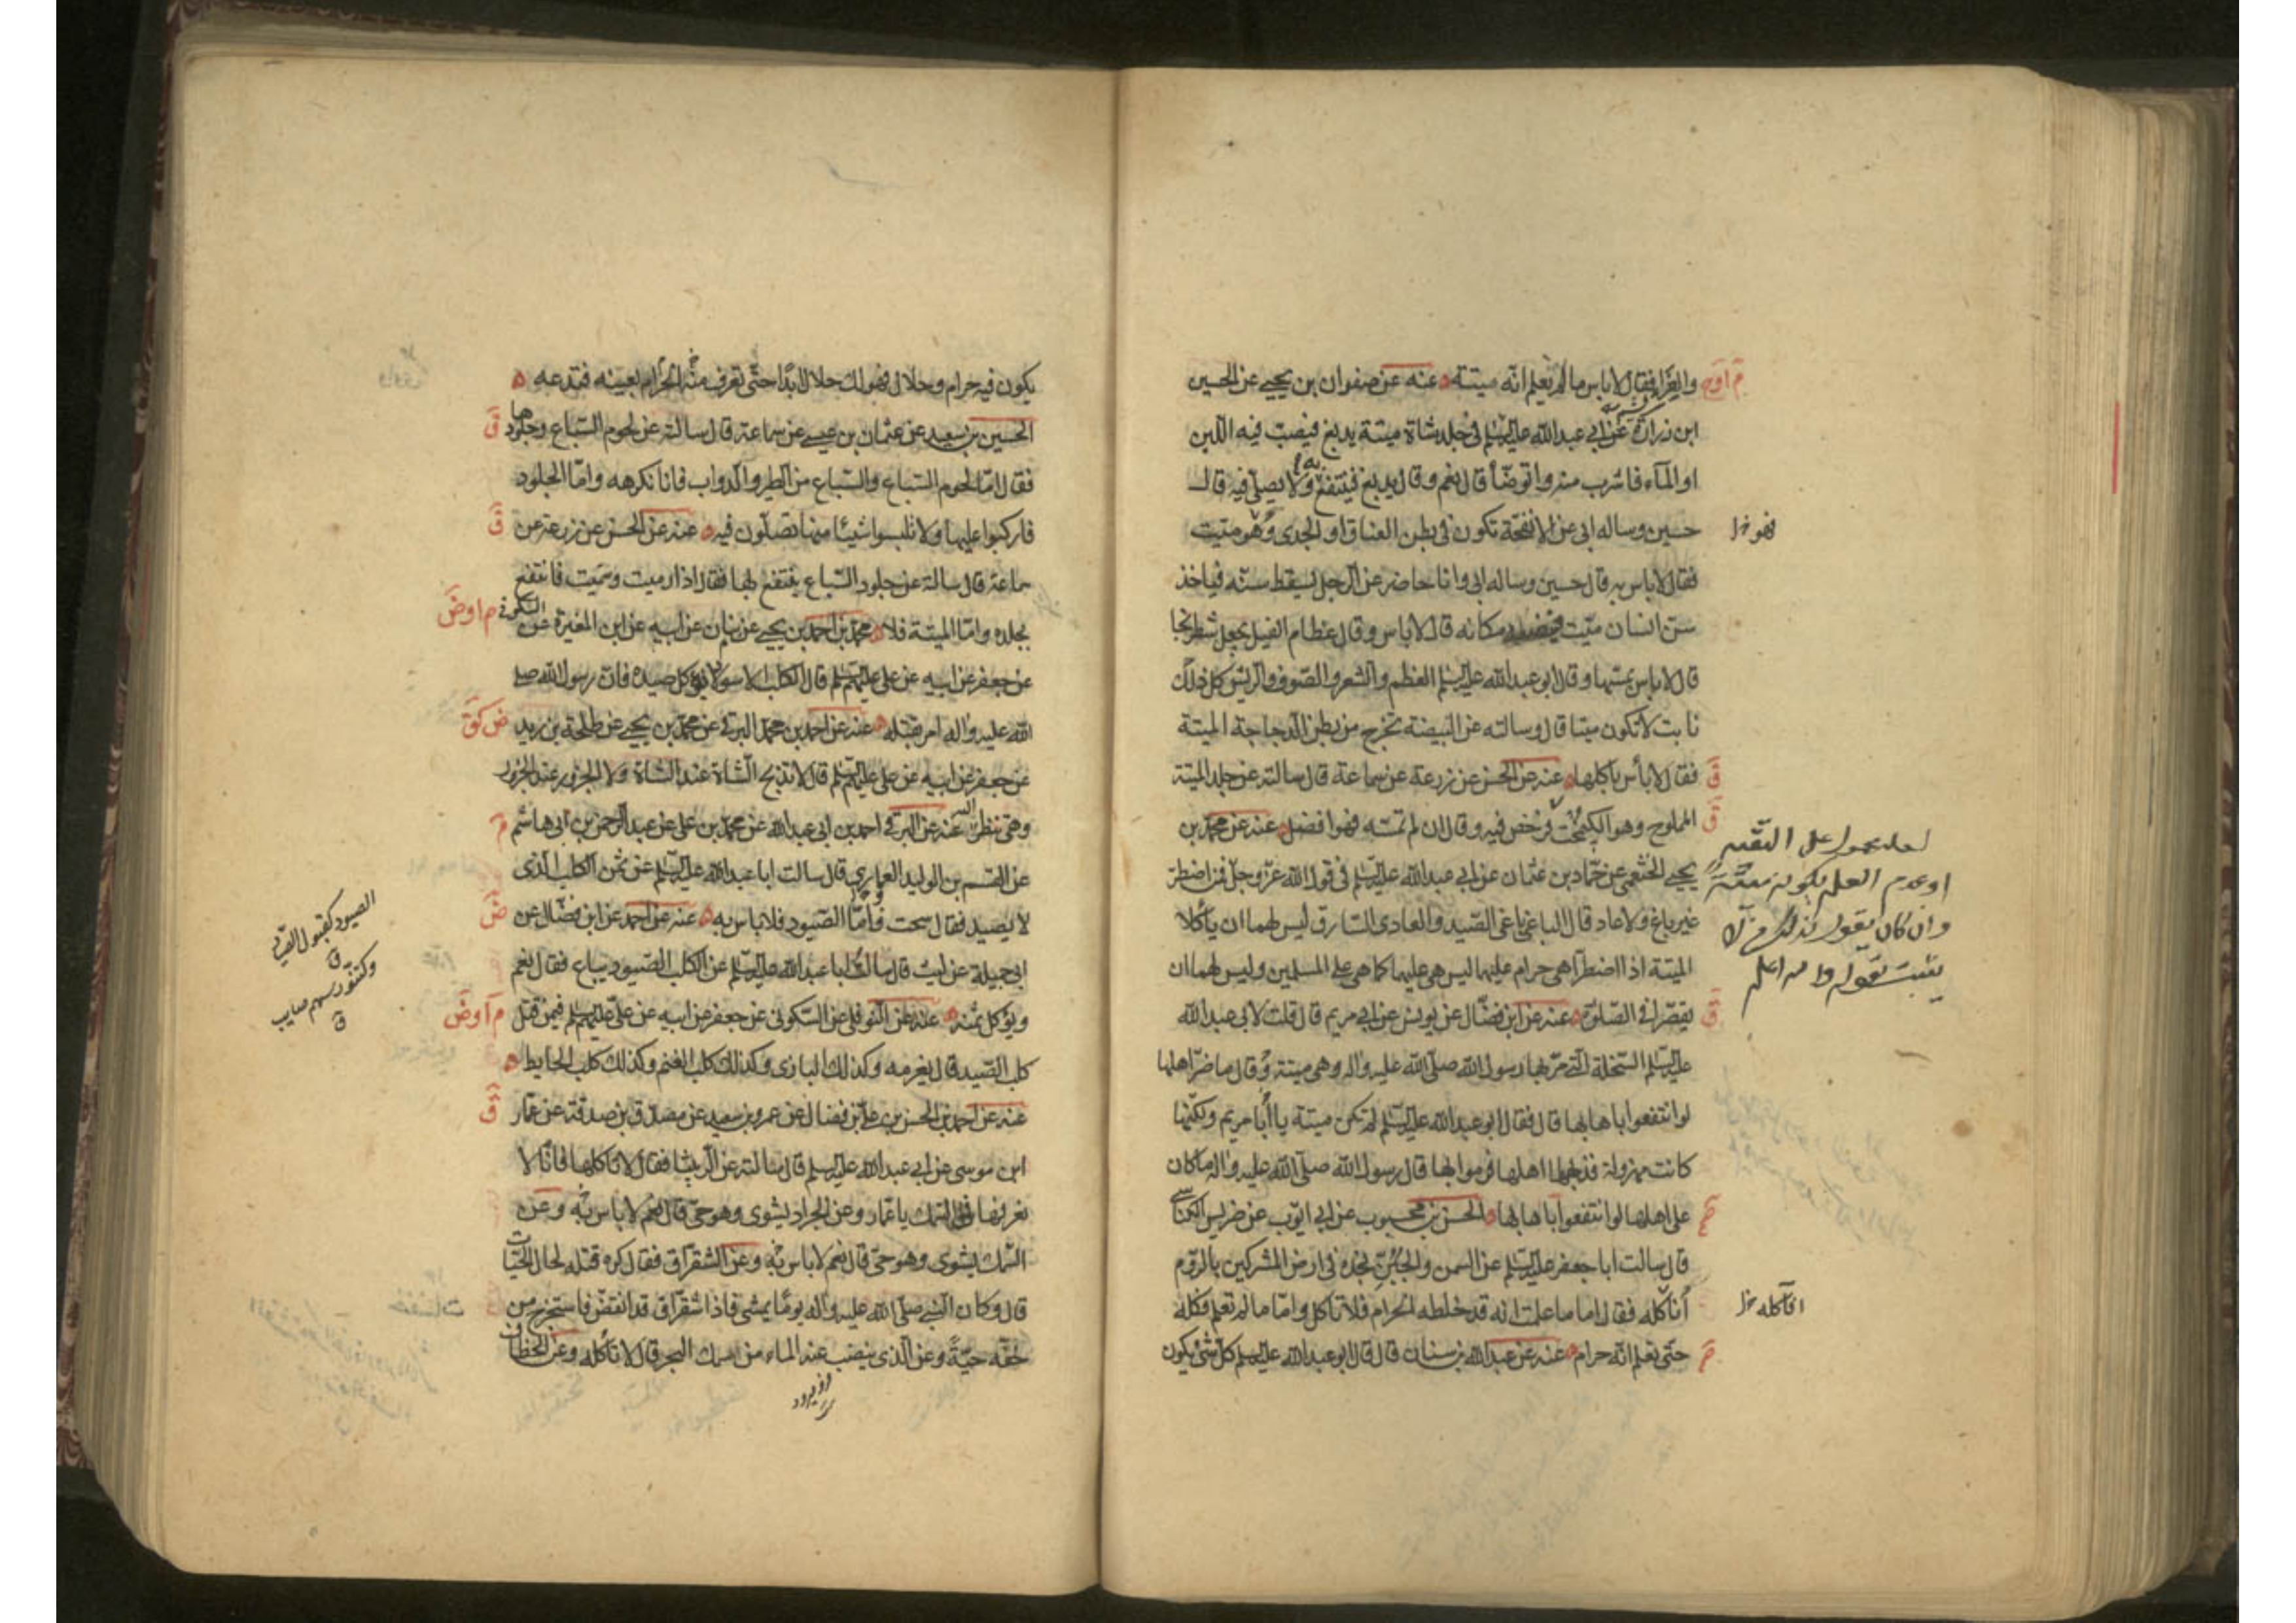 والغرا فقال لا باس ما لم يعلم انه ميتة عنه عن صفوان بن يحيى عن الحسين
ابن زرارة عن ابي عبد الله عليه السلام في جلد شاة ميتة يدبغ فيصب فيه اللبن
او الماء فاشرب منه واتوضأ قال نعم وقال يدبغ فينتفع به ولا يصلى فيه قال
حسين وساله ابي عن الانفحة تكون في بطن العناق او الجدى وهو ميت
فهو خ ل
فقال لا باس به قال حسين وساله ابي وانا حاضر عن الرجل يسقط سنه فياخذ
سن انسان ميت مكانه قال لا باس وقال عظام الفيل يجعل شطرنجا
قال لا باس بمسها وقال ابو عبد الله عليه السلام العظم والشعر والصوف والريش كل ذلك
نابت لا تكون ميتا قال وسالته عن البيضة تخرج من بطن الدجاجة الميتة
فقال لا بأس باكلها عنه عن الحسن عن زرعة عن سماعة قال سالته عن جلد الميتة
المملوح وهو الكيمخت فرخص فيه وقال ان لم تمسه فهو افضل عنه عن محمد بن
يحيى الخثعمى عن حماد بن عثمان عن ابي عبد الله عليه السلام في قول الله عز وجل فمن اضطر
غير باغ ولا عاد قال الباغى باغى الصيد والعادى السارق ليس لهما ان ياكلا
الميتة اذا اضطرا هى حرام عليهما ليس هى عليهما كما هى على المسلمين وليس لهما ان
يقصرا في الصلوة عنه عن ابن فضال عن يونس عن ابي مريم قال قلت لابي عبد الله
عليه السلام السخلة التى مر بها رسول الله صلى الله عليه واله وهى ميتة وقال ما ضر اهلها
لو انتفعوا باهابها قال فقال ابو عبد الله عليه السلام لم تكن ميتة يا أبا مريم ولكنها
كانت مهزولة فذبحها اهلها فرموا بها قال رسول الله صلى الله عليه واله ما كان
على اهلها لو انتفعوا باهابها الحسن بن محبوب عن ابي ايوب عن ضريس الكناسي
قال سالت ابا جعفر عليه السلام عن السمن والجبن نجده في ارض المشركين بالروم
أناكله فقال اما ما علمت انه قد خلطه الحرام فلا تاكل واما ما لم تعلم فكله
افآكله خ ل
حتى تعلم انه حرام عنه عن عبد الله بن سنان قال قال ابو عبد الله عليه السلام كل شئ يكون
لعله محمول على التقية
او عدم العلم بكونه ميتة
وان كان يقول بذلك
يثبت بقوله والله اعلم
يكون فيه حرام وحلال فهو لك حلال ابدا حتى تعرف منه الحرام بعينه فتدعه
الحسين بن سعيد عن عثمان بن عيسى عن سماعة قال سالته عن لحوم السباع وجلودها
فقال اما لحوم السباع والسباع من الطير والدواب فانا نكرهه واما الجلود
فاركبوا عليها ولا تلبسوا شيئا منها تصلون فيه عنه عن الحسن عن زرعة عن
سماعة قال سالته عن جلود السباع ينتفع بها فقال اذا رميت وسميت فانتفع
بجلده واما الميتة فلا محمد بن احمد بن يحيى عن بنان عن ابيه عن ابن المغيرة عن السكونى
عن جعفر عن ابيه عن على عليهم السلام قال الكلب الاسود لا يؤكل صيده فان رسول الله صلى
الله عليه واله امر بقتله عنه عن احمد بن محمد البرقى عن محمد بن يحيى عن طلحة بن زيد
عن جعفر عن ابيه عن على عليهم السلام قال لا تذبح الشاة عند الشاة ولا الجزور عند الجزور
وهى تنظر اليه عنه عن البرقى احمد بن ابي عبد الله عن محمد بن على عن عبد الرحمن بن ابي هاشم
عن القسم بن الوليد العمارى قال سالت ابا عبد الله عليه السلام عن ثمن الكلب الذى
لا يصيد فقال سحت واما الصيود فلا باس به عنه عن احمد عن ابن فضال عن
ابي جميلة عن ليث قال سالت ابا عبد الله عليه السلام عن الكلب الصيود يباع فقال نعم
ويؤكل ثمنه عنه عن النوفلى عن السكونى عن جعفر عن ابيه عن على عليهم السلام فيمن قتل
كلب الصيد قال يغرمه وكذلك البازى وكذلك كلب الغنم وكذلك كلب الحايط
عنه عن احمد بن الحسن بن على بن فضال عن عمرو بن سعيد عن مصدق بن صدقة عن عمار
ابن موسى عن ابي عبد الله عليه السلام قال سالته عن الربيثا فقال لا تاكلها فانا لا
نعرفها في السمك يا عمار وعن الجراد يشوى وهو حى قال نعم لا باس به وعن
السمك يشوى وهو حى قال نعم لا باس به وعن الشقراق فقال كره قتله لحال الحيات
قال وكان النبى صلى الله عليه واله يوما يمشى فاذا شقراق قد انقض فاستخرج من
خفه حية وعن الذى ينضب عنه الماء من سمك البحر قال لا تأكله وعن الخطاف
الصيود كقبول الصيد
ق
وكتنور سهم صايب
ق